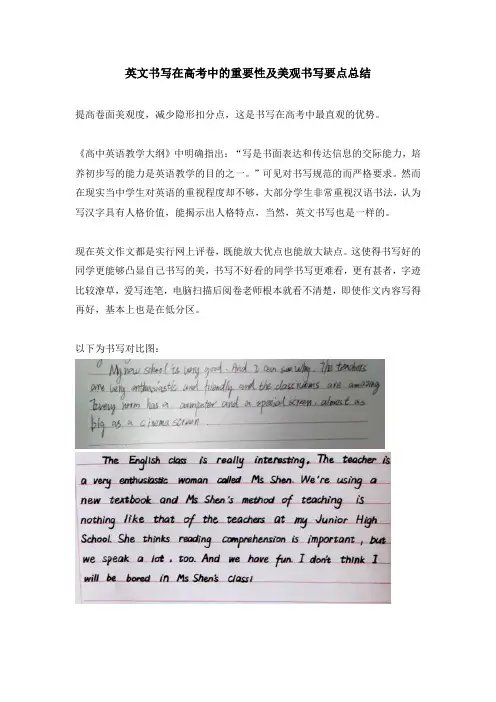 英文书写在高考中的重要性及美观书写要点总结
提高卷面美观度，减少隐形扣分点，这是书写在高考中最直观的优势。
《高中英语教学大纲》中明确指出：“写是书面表达和传达信息的交际能力，培
养初步写的能力是英语教学的目的之一。”可见对书写规范的而严格要求。然而
在现实当中学生对英语的重视程度却不够，大部分学生非常重视汉语书法，认为
写汉字具有人格价值，能揭示出人格特点，当然，英文书写也是一样的。
现在英文作文都是实行网上评卷，既能放大优点也能放大缺点。这使得书写好的
同学更能够凸显自己书写的美，书写不好看的同学书写更难看，更有甚者，字迹
比较潦草，爱写连笔，电脑扫描后阅卷老师根本就看不清楚，即使作文内容写得
再好，基本上也是在低分区。
以下为书写对比图：
My new school is very good. And I can see why. The teachers
are very enthusiastic and friendly and the classrooms are amazing
Every room has a computer and a special screen, almost as
big as a cinema screen.
The English class is really interesting. The teacher is
a very enthusiastic woman called Ms Shen. We're using a
new textbook and Ms Shen's method of teaching is
nothing like that of the teachers at my Junior High
School. She thinks reading comprehension is important, but
we speak a lot, too. And we have fun. I don't think I
will be bored in Ms Shen's class!